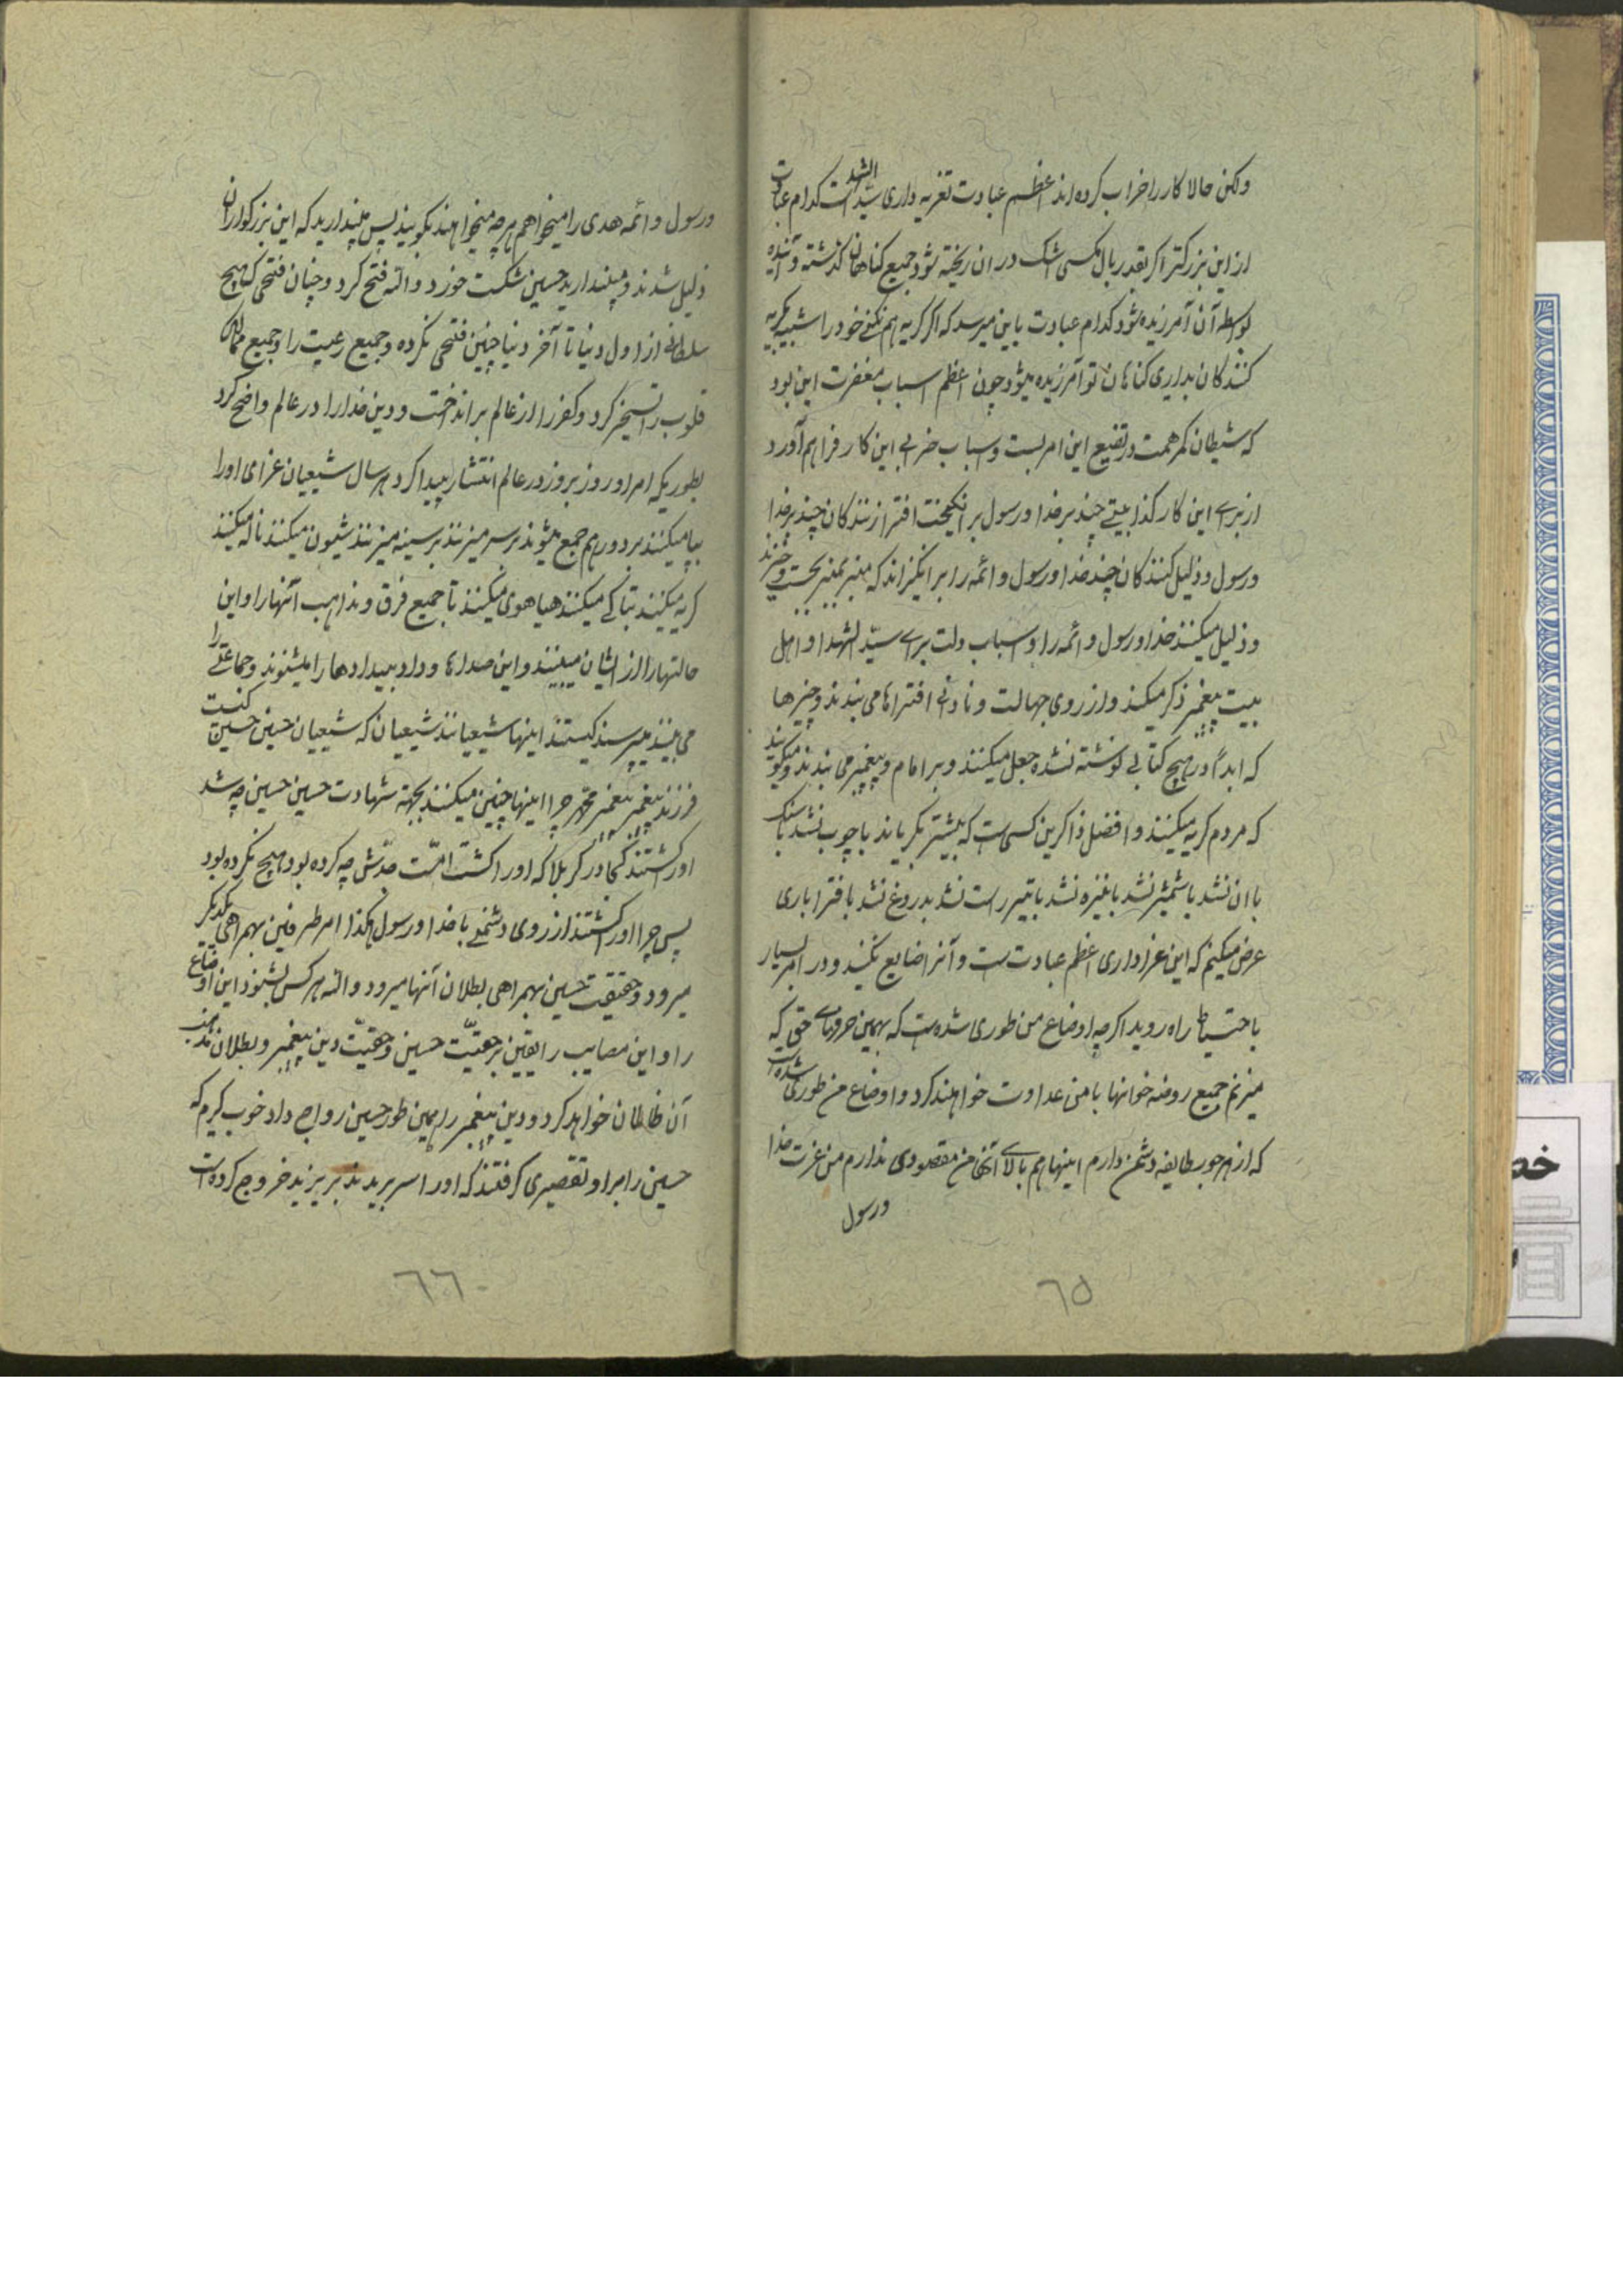 ولکن حالا کار را خراب کرده‌اند اعظم عبادت تعزیه داری سیّد الشهداست کدام عبادت
از این بزرکتر اکر بقدر بال مکسی اشک در ان ریخته شود جمیع کناهان کذشته و آینده
بواسطه آن آمرزیده شود کدام عبادت باین میرسد که اکر کریه هم نکنی خود را شبیه بکریه
کنندکان بداری کناهان تو آمرزیده میشود چون اعظم اسباب مغفرت این بود
که شیطان کمر همت در تضییع این امر بست و اسباب خرابی این کار فراهم آورد
از برای این کار کذابیتی چند بر خدا و رسول بر انکیخت افترا زنندکان چند بر خدا
و رسول و ذلیل کنندکان چند خدا و رسول و ائمه را بر انکیزاند که منبر بمنبر بجست و خیزند
و ذلیل میکنند خدا و رسول و ائمه را و اسباب ذلت برای سیّد الشهدا و اهل
بیت پیغمبر ذکر میکنند و از روی جهالت و نادانی افتراها می بندند و چیزها
که ابداً در هیچ کتابی نوشته نشده جعل میکنند و بر امام و پیغمبر می بندند و میکویند
که مردم کریه میکنند و افضل ذاکرین کسی است که بیشتر بکریاند با چوب نشد با سنک
با ان نشد با شمشیر نشد با نیزه نشد با تیر راست نشد بدروغ نشد با افترا باری
عرض میکنم که این عزاداری اعظم عبادت است و آنرا ضایع نکنید و در امر بسیار
با احتیاط راه روید اکرچه اوضاع من طوری شده است که بهمین حرفهای حقی که
میزنم جمیع روضه خوانها با من عداوت خواهند کرد و اوضاع من طوری شده است
که از هر جور طایفه دشمن دارم اینها هم بالای آنها من مقصودی ندارم من عزت خدا
و رسول
٦٥
و رسول و ائمه هدی را میخواهم هر چه میخواهند بکویند پس مپندارید که این بزرکواران
ذلیل شدند و مپندارید حسین شکست خورد والله فتح کرد و چنان فتحی که هیچ
سلطانی از اول دنیا تا آخر دنیا چنین فتحی نکرده و جمیع رعیت را و جمیع ممالک
قلوب را تسخیر کرد و کفر را از عالم بر انداخت و دین خدا را در عالم واضح کرد
بطوریکه امر او روز بروز در عالم انتشار پیدا کرد هر سال شیعیان عزای او را
بپا میکنند بر دور هم جمع میشوند بر سر میزنند بر سینه میزنند شیون میکنند ناله میکنند
کریه میکنند تباکی میکنند هیاهوی میکنند تا جمیع فرق و مذاهب آنها را و این
حالتها را از ایشان میبینند و این صداها و داد و بیدادها را میشنوند و جماعتی را
می بینند میپرسند کیستند اینها شیعیانند شیعیان که شیعیان حسین حسین کیست
فرزند پیغمبر پیغمبر محمّد چرا اینها چنین میکنند بجهة شهادت حسین حسین چه شد
او را کشتند کجا در کربلا که او را کشت امّت جدّش چه کرده بود هیچ نکرده بود
پس چرا او را کشتند از روی دشمنی با خدا و رسول هکذا امر طرفین بهمراهی یکدیکر
میرود و حقیقت حسین بهمراهی بطلان آنها میرود والله هر کس بشنود این اوضاع
را و این مصایب را یقین بر حقیّت حسین و حقیّت دین پیغمبر و بطلان مذهب
آن ظالمان خواهد کرد و دین پیغمبر را همین طور حسین رواج داد خوب کیرم که
حسین را بر او تقصیری کرفتند که او را سر بریدند بر یزید خروج کرده است
٦٦